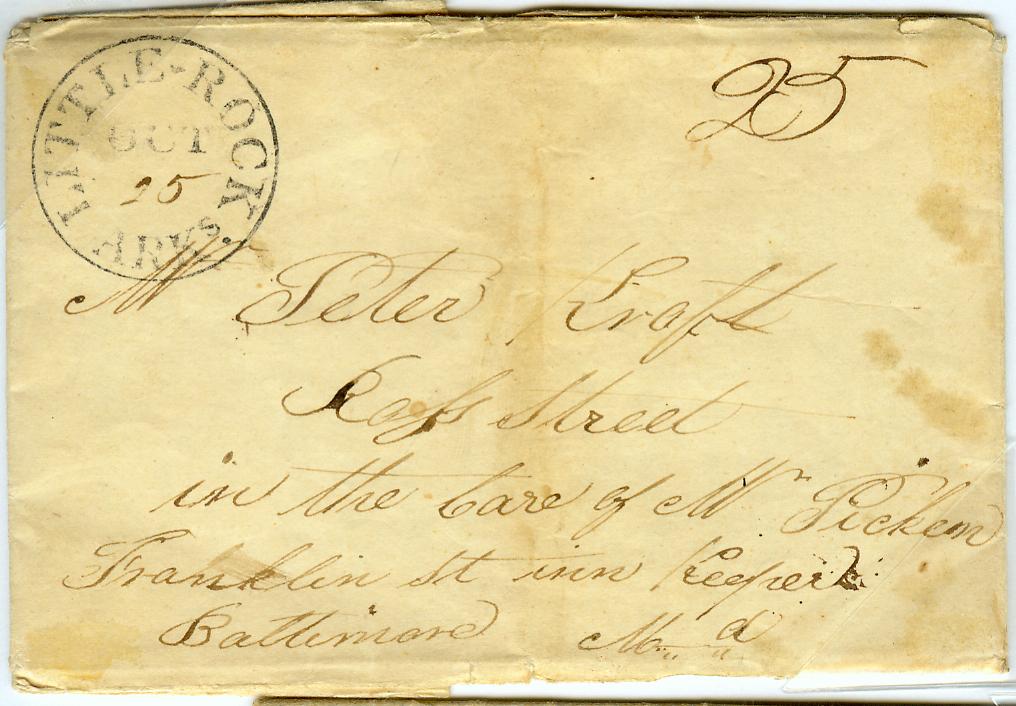 LITTLE-ROCK
OCT
25
ARKs.
25
Mr Peter Kraft
Ross Street
in the Care of Mr Pickem
Franklin st inn Keeper
Baltimore Md